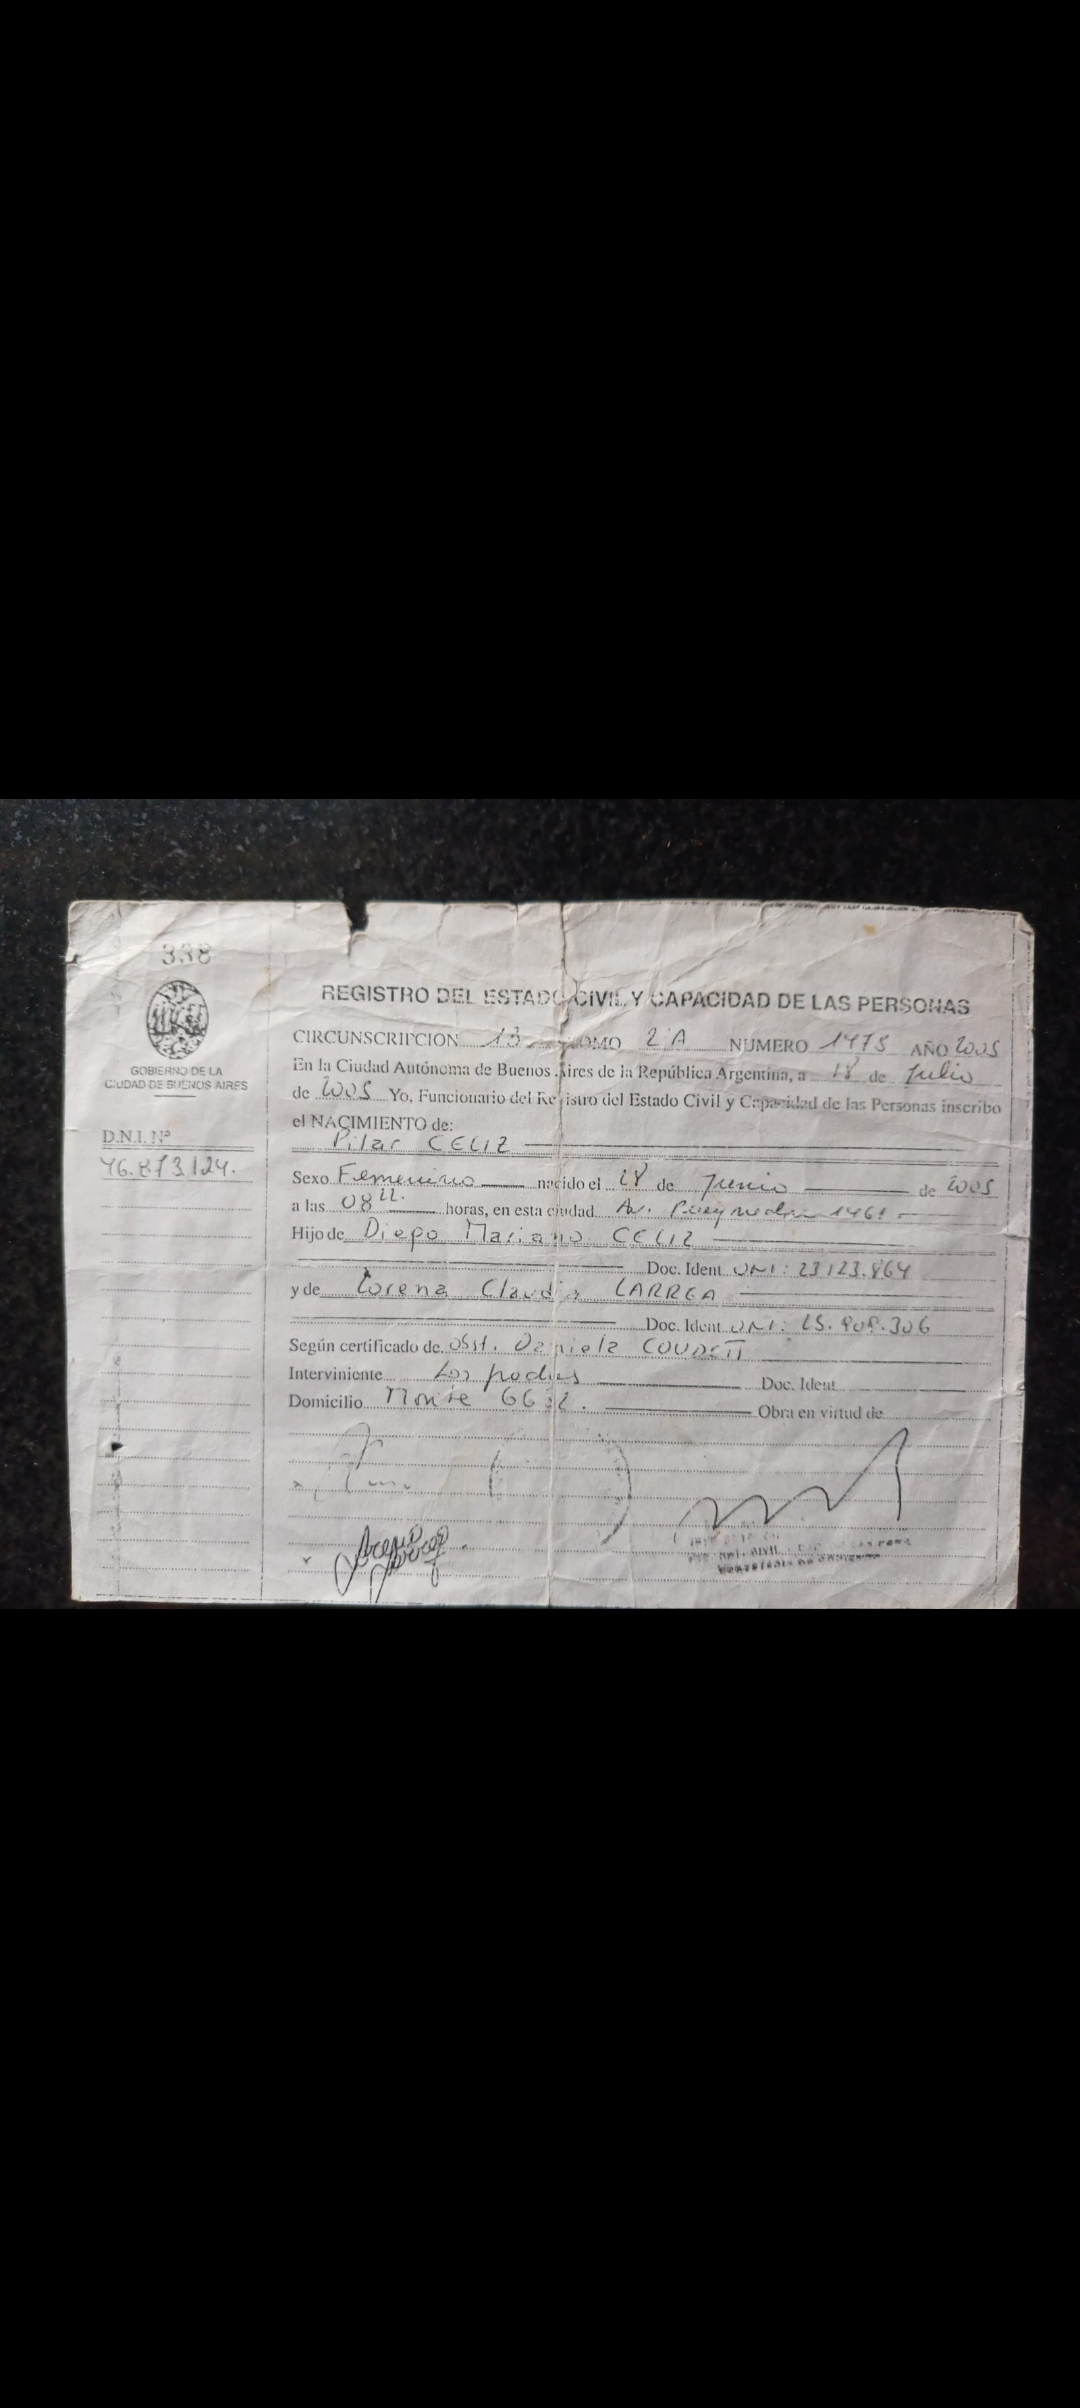 338
GOBIERNO DE LA
CIUDAD DE BUENOS AIRES
D.N.I. Nº
46.873.124.
REGISTRO DEL ESTADO CIVIL Y CAPACIDAD DE LAS PERSONAS
CIRCUNSCRIPCION 13 TOMO 2ºA NUMERO 1475 AÑO 2005
En la Ciudad Autónoma de Buenos Aires de la República Argentina, a 18 de Julio
de 2005 Yo, Funcionario del Registro del Estado Civil y Capacidad de las Personas inscribo
el NACIMIENTO de:
Pilar CELIZ
Sexo Femenino nacido el 28 de Junio de 2005
a las 08 horas, en esta ciudad Av. Pueyrredon 1461
Hijo de Diego Mariano CELIZ
Doc. Ident DNI: 23.123.864
y de Lorena Claudia LARREA
Doc. Ident. DNI: 25.908.306
Según certificado de Obst. Daniela
Interviniente Los padres Doc. Ident.
Domicilio Monte Obra en virtud de